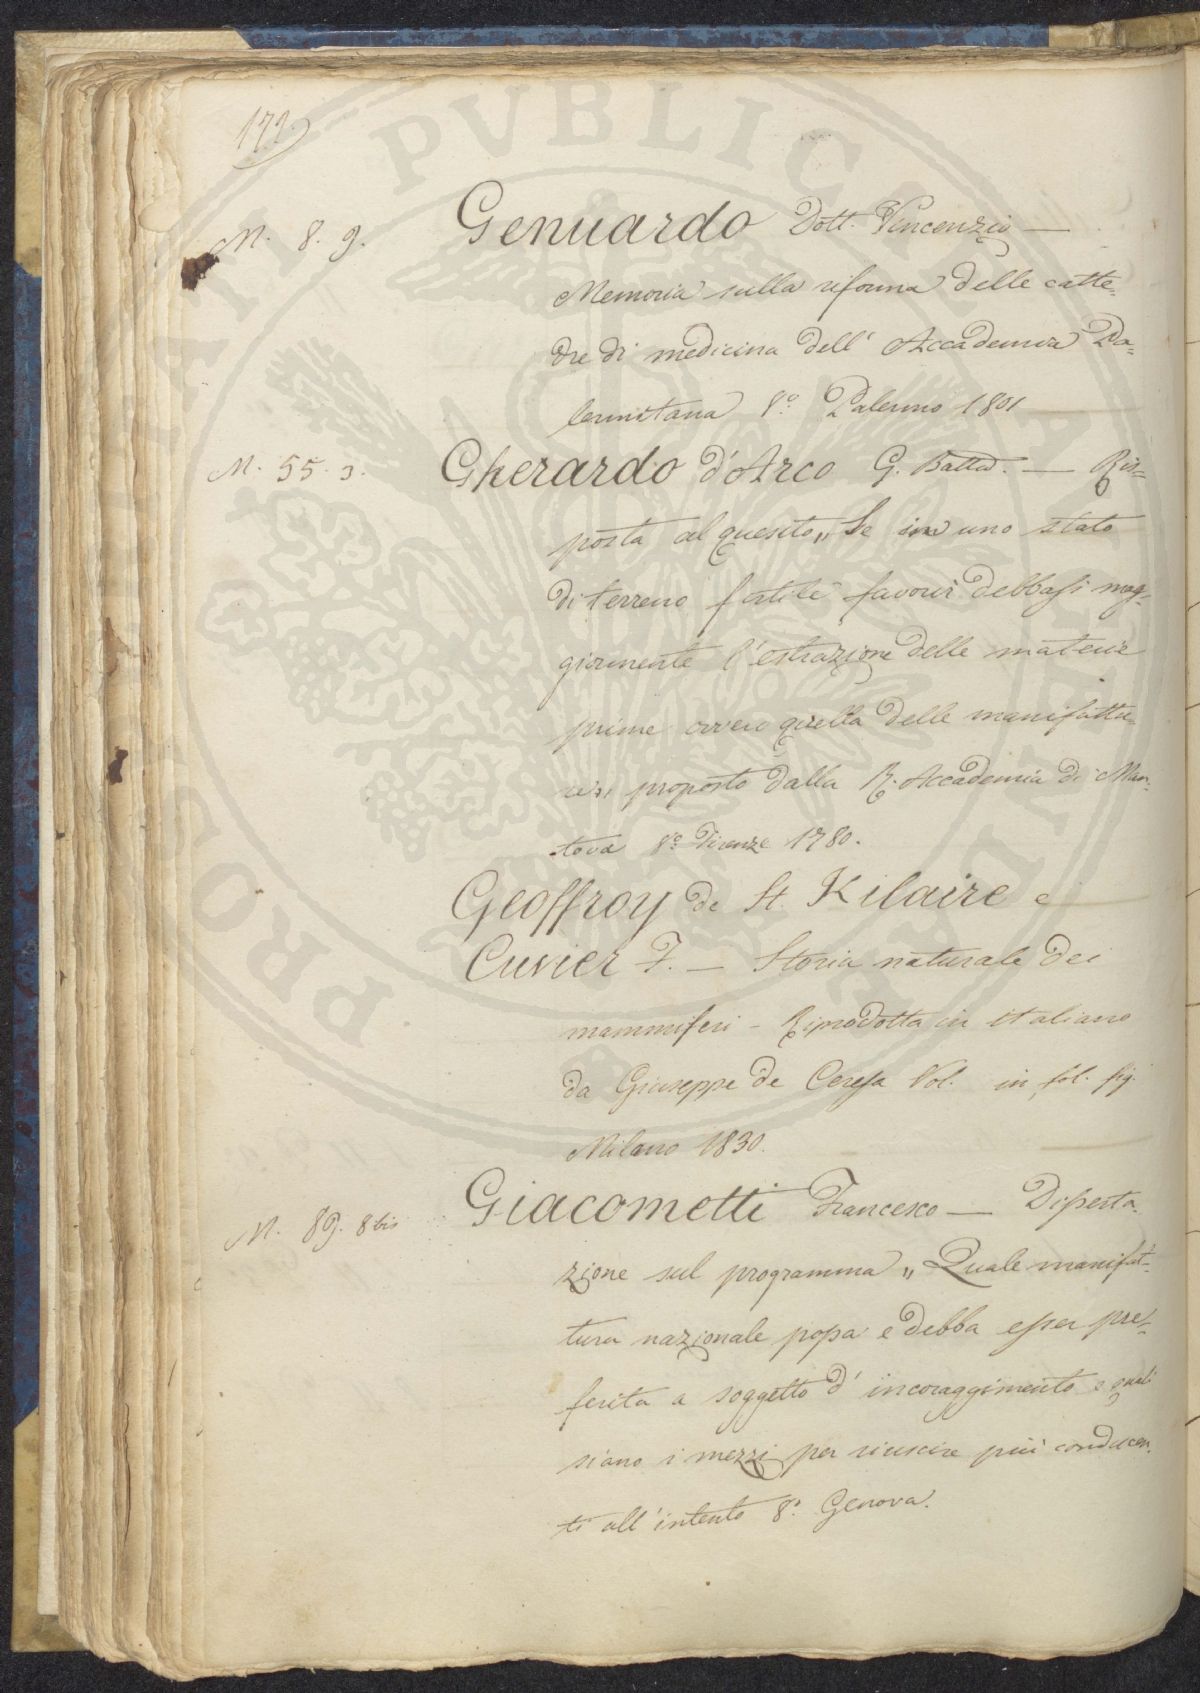 172.
M. 8. 9. Genuardo Dott. Vincenzio —
Memoria sulla riforma delle catte-
dre di medicina dell' Accademia Pa-
lermitana 8.º Palermo 1801
M. 55. 3. Gherardo d'Arco G. Battā. — Ris-
posta al quesito „ Se in uno stato
di terreno fertile favorir debbasi mag-
giormente l'estrazione delle materie
prime ovvero quella delle manifattu-
re „ proposto dalla R. Accademia di Man-
tova 8.º Firenze 1780.
Geoffroy de St. Kilaire e
Cuvier F. — Storia naturale dei
mammiferi - Riprodotta in italiano
da Giuseppe de Ceresa Vol. in fol. fig.
Milano 1830.
M. 89. 8 bis Giacometti Francesco — Disserta-
zione sul programma „ Quale manifat-
tura nazionale possa e debba esser pre-
ferita a soggetto d' incoraggimento e quali
siano i mezzi per riuscire più conducen-
ti all'intento 8.º Genova.
PROPVBLICAEVTI